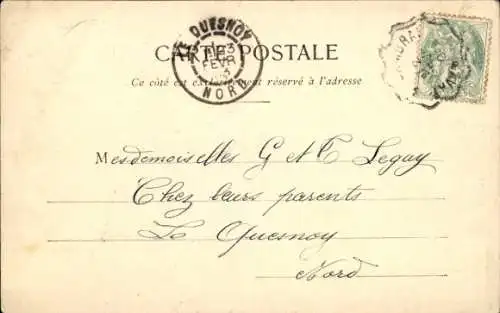 CARTE POSTALE
LE QUESNOY
FEVR
NORD
Ce côté est exclusivement réservé à l'adresse
Mesdemoiselles G et T Legay
Chez leurs parents
Le Quesnoy
Nord